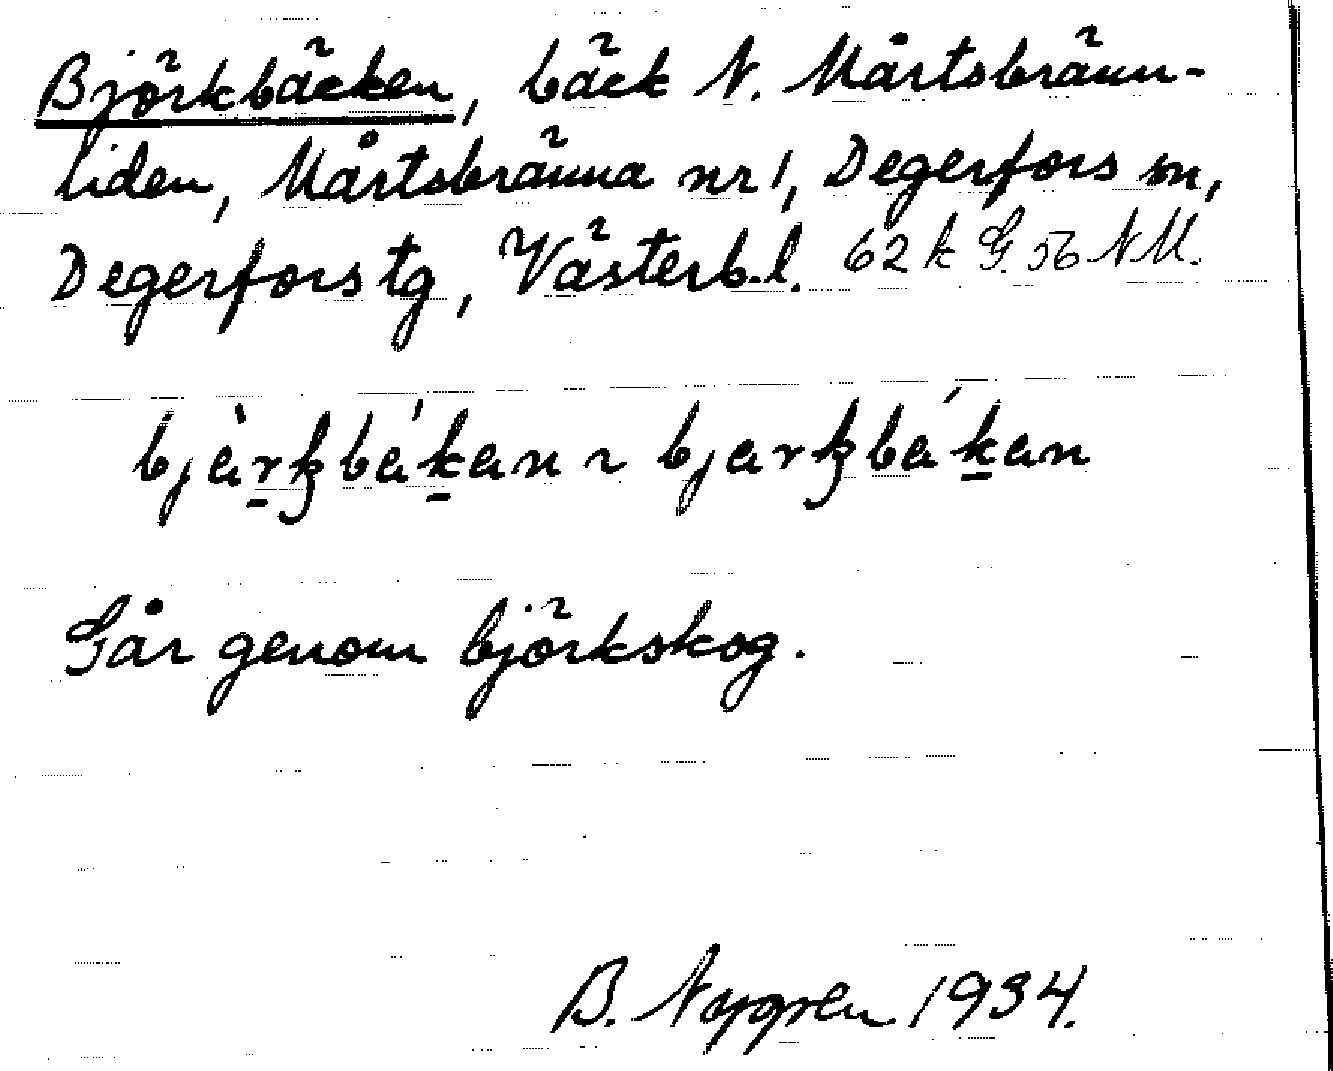 Björkbäcken, bäck N. Mårtsbränn-
liden, Mårtsbränna nr 1, Degerfors sn,
Degerfors tg, Västerb.l. 62 k G. 56 NM.
bjàrkbákan ~ bjarkbákan
Går genom björkskog.
B. Nygren 1934.